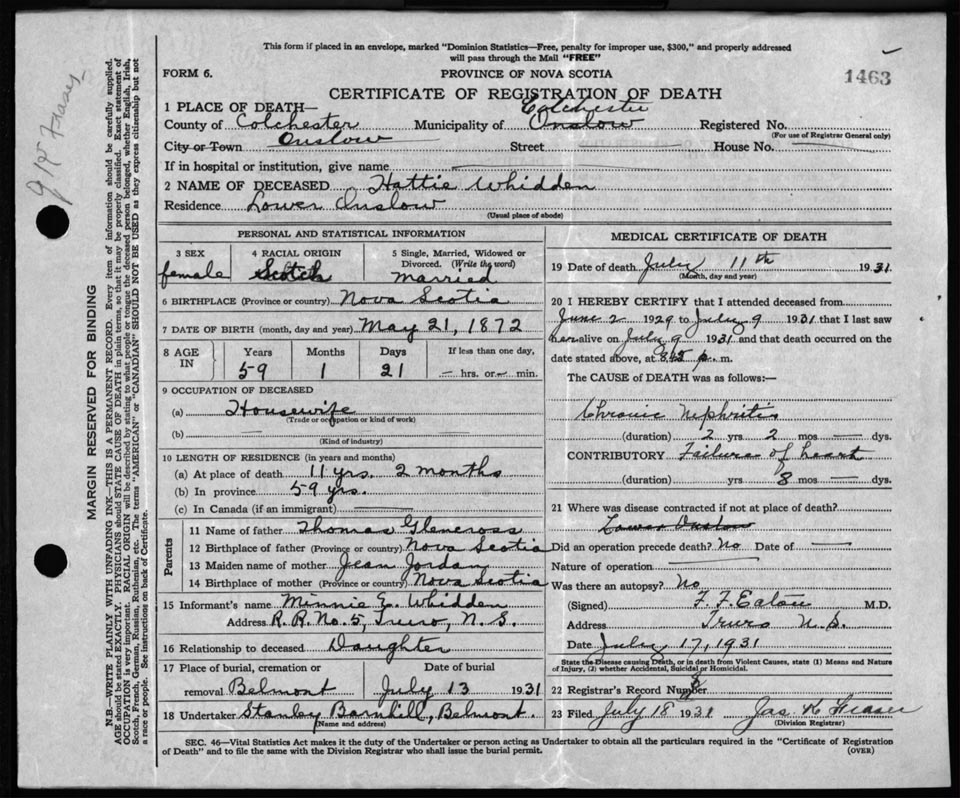 This form if placed in an envelope, marked "Dominion Statistics—Free, penalty for improper use, $300," and properly addressed
will pass through the Mail "FREE"
FORM 6.
PROVINCE OF NOVA SCOTIA
1463
CERTIFICATE OF REGISTRATION OF DEATH
1 PLACE OF DEATH—
Colchester
County of Colchester Municipality of Onslow Registered No.
(For use of Registrar General only)
City or Town Onslow Street House No.
If in hospital or institution, give name
2 NAME OF DECEASED Hattie Whidden
Residence Lower Onslow
(Usual place of abode)
PERSONAL AND STATISTICAL INFORMATION
3 SEX female
4 RACIAL ORIGIN Scotch
5 Single, Married, Widowed or Divorced. (Write the word) Married
6 BIRTHPLACE (Province or country) Nova Scotia
7 DATE OF BIRTH (month, day and year) May 21, 1872
8 AGE IN Years Months Days If less than one day,
59 1 21 — hrs. or — min.
9 OCCUPATION OF DECEASED
(a) Housewife
(Trade or occupation or kind of work)
(b) —
(Kind of industry)
10 LENGTH OF RESIDENCE (in years and months)
(a) At place of death 11 yrs. 2 months
(b) In province 59 yrs.
(c) In Canada (if an immigrant)
Parents
11 Name of father Thomas Glencross
12 Birthplace of father (Province or country) Nova Scotia
13 Maiden name of mother Jean Jordan
14 Birthplace of mother (Province or country) Nova Scotia
15 Informant's name Minnie E. Whidden
Address R. R. No. 5, Truro, N. S.
16 Relationship to deceased Daughter
17 Place of burial, cremation or Date of burial
removal Belmont July 13 1931
18 Undertaker Stanley Barnhill, Belmont.
(Name and address)
MEDICAL CERTIFICATE OF DEATH
19 Date of death July 11th 1931
(Month, day and year)
20 I HEREBY CERTIFY that I attended deceased from
June 2 1929 to July 9 1931 that I last saw
her alive on July 9 1931 and that death occurred on the
date stated above, at 8.45 p. m.
The CAUSE of DEATH was as follows:—
Chronic Nephritis
(duration) 2 yrs 2 mos — dys.
CONTRIBUTORY Failure of heart
(duration) yrs 8 mos — dys.
21 Where was disease contracted if not at place of death?
Lower Onslow
Did an operation precede death? No Date of —
Nature of operation
Was there an autopsy? No
(Signed) F. F. Eaton M.D.
Address Truro N.S.
Date July 17, 1931
State the Disease causing Death, or in death from Violent Causes, state (1) Means and Nature
of Injury, (2) whether Accidental, Suicidal or Homicidal.
22 Registrar's Record Number 8
23 Filed July 18 1931 Jas. W. Fraser
(Division Registrar)
SEC. 46—Vital Statistics Act makes it the duty of the Undertaker or person acting as Undertaker to obtain all the particulars required in the "Certificate of Registration
of Death" and to file the same with the Division Registrar who shall issue the burial permit.
(OVER)
MARGIN RESERVED FOR BINDING
N.B.—WRITE PLAINLY WITH UNFADING INK—THIS IS A PERMANENT RECORD. Every item of information should be carefully supplied.
AGE should be stated EXACTLY. PHYSICIANS should STATE CAUSE OF DEATH in plain terms, so that it may be properly classified. Exact statement of
OCCUPATION is very important. RACIAL ORIGIN will be described by stating to what people or tongue the deceased person belonged, whether English, Irish,
Scotch, French, German, Russian, Ruthenian, etc. The terms "AMERICAN" or "CANADIAN" SHOULD NOT BE USED as they express citizenship but not
a race or people. See instructions on back of Certificate.